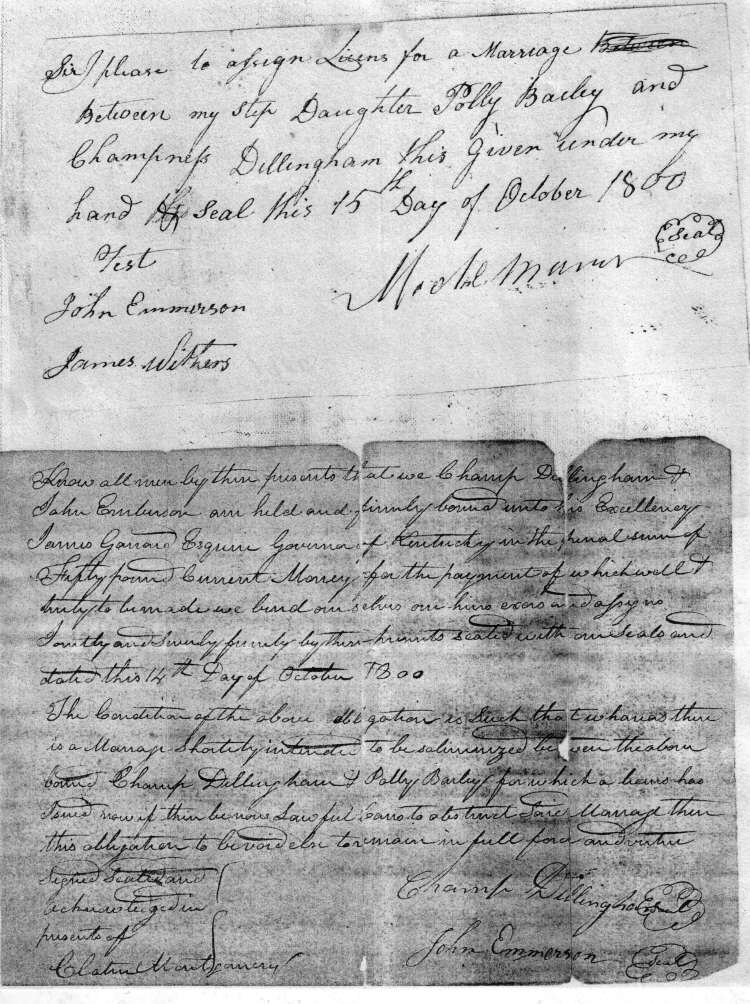 Sir please to assign Licens for a Marriage Between
Between my step Daughter Polly Bailey and
Champness Dillingham this Given under my
hand & Seal this 15th Day of October 1800
Test
Seal
John Emmerson
James Withers
Know all men by these presents that we Champ Dillingham &
John Emberson are held and firmly bound unto his Excellency
James Garrard Esquire Governor of Kentucky in the penal sum of
Fifty pound Current Money for the payment of which well &
truly to be made we bind our selves our hirs exors and assigns
Jointly and severly firmly by these presents sealed with our Seals and
dated this 14th Day of October 1800
The Condition of the above obligation is Such that whareas there
is a Marriage Shortly intended to be solimnized between the above
bound Champ Dillingham & Polly Bailey for which a has
Issued now if there be now Lawful Caus to obstruct Marriage then
this obligation to be void else to remain in full force and virtue
Signed Sealed and
acknowledged in
presents of
Champ Dillingham Seal
John Emmerson Seal
Montgomery